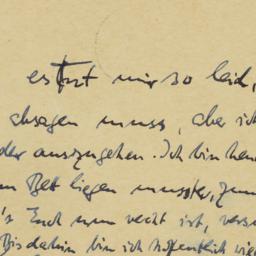 es tut mir so leid,
absagen muss, aber ich
der auszugehen. Ich bin heu
m Bett liegen musste, zum
's Euch nun recht ist, vers
Bis dahin bin ich hoffentlich wie